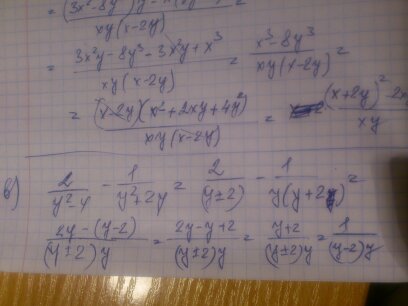 = (3x² - 8y
xy(x-2y)
= 3x²y - 8y³ - 3x²y + x³ / xy(x-2y) = x³ - 8y³ / xy(x-2y) =
= (x-2y)(x² + 2xy + 4y²) / xy(x-2y) = (x+2y)² - 2x / xy
б) 2 / y² 4 - 1 / y² + 2y = 2 / (y±2) - 1 / y(y+2) =
2y - (y-2) / (y±2)y = 2y - y + 2 / (y±2)y = y+2 / (y±2)y = 1 / (y-2)y